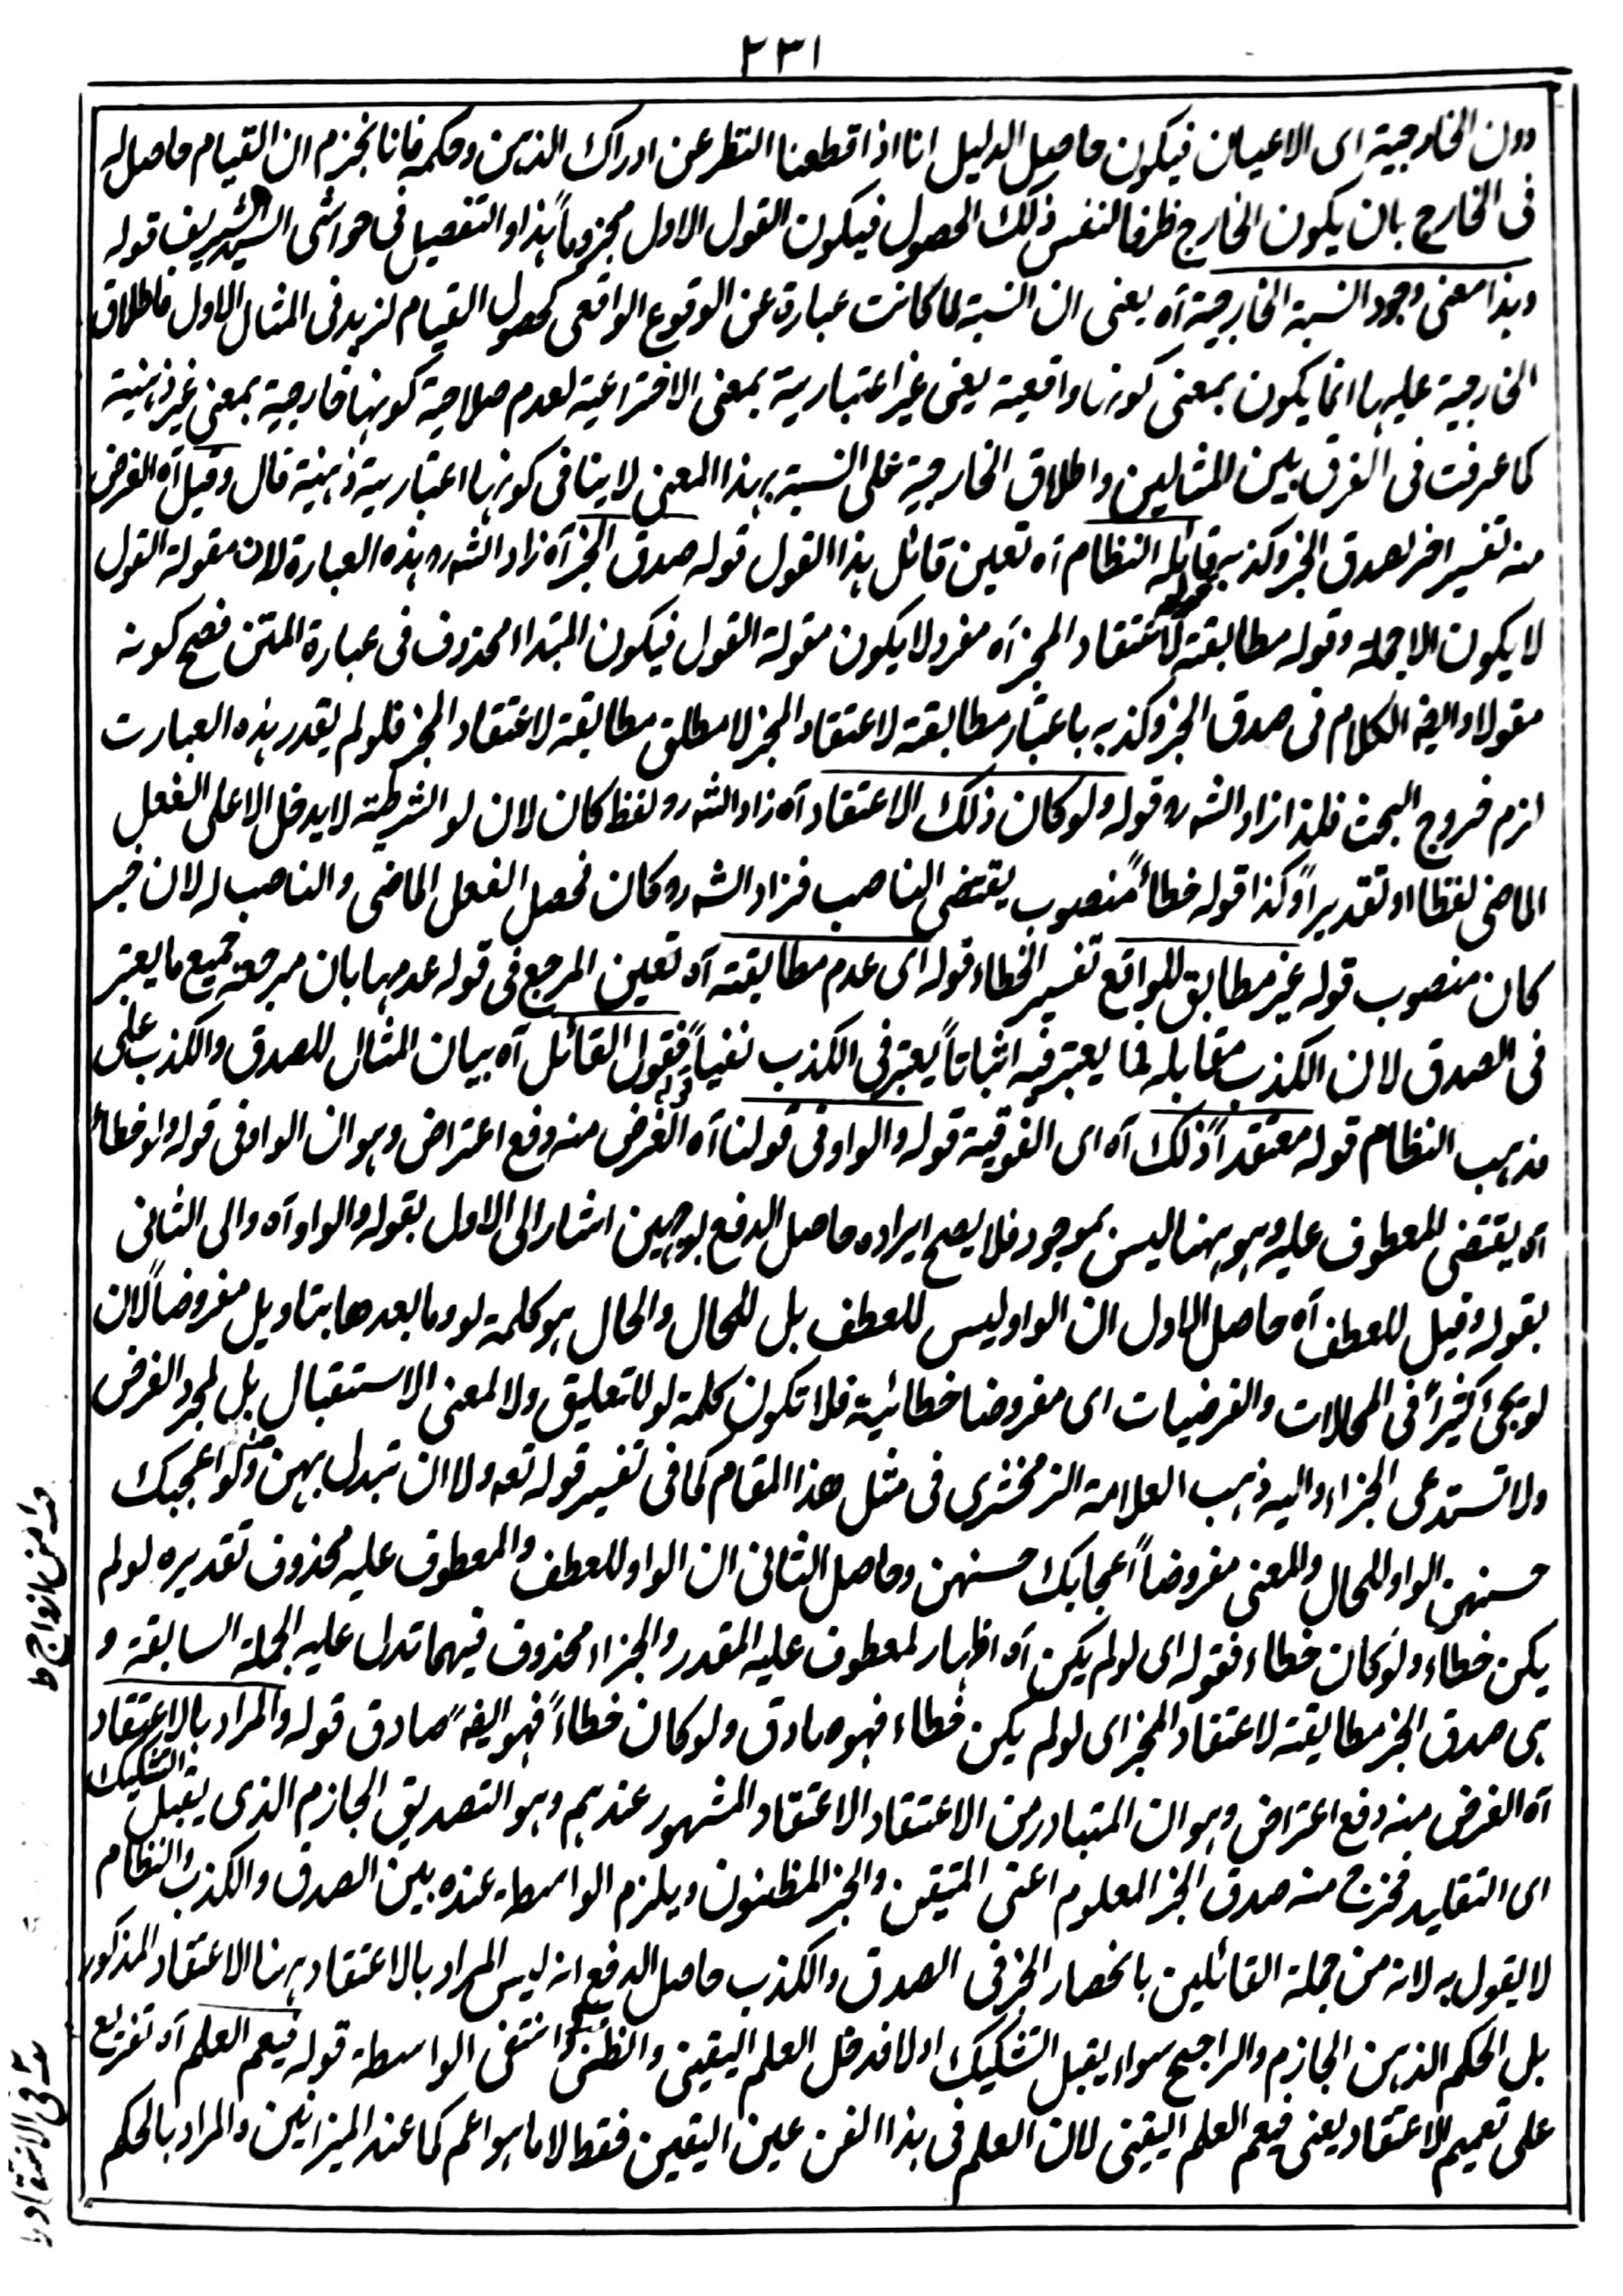 ٢٣١
دون الخارجية اى الاعيان فيكون حاصل الدليل انا اذا قطعنا النظر عن ادراك الذهن وحكمه فانا نجزم ان القيام حاصل له
فى الخارج بان يكون الخارج ظرفا لنفس ذلك الحصول فيكون القول الاول مجزوماً هذا والتفصيل فى حواشى السيد الشريف قوله
وهذا معنى وجود النسبة الخارجية آه يعنى ان النسبة لما كانت عبارة عن الوقوع الواقعى كحصول القيام لزيد فى المثال الاول فاطلاق
الخارجية عليها انما يكون بمعنى كونها واقعية يعنى غير اعتبارية بمعنى الاختراعية لعدم صلاحية كونها خارجية بمعنى غير ذهنية
كما عرفت فى الفرق بين المثالين واطلاق الخارجية على النسبة بهذا المعنى لا ينافى كونها اعتبارية ذهنية قال وقيل آه الغرض
منه تفسير اخر لصدق الخبر وكذبه قوله قائله النظام آه تعين قائل هذا القول قوله صدق الخبر آه زاد الشه رو هذه العبارة لان مقولة القول
لا يكون الا جملة وقوله مطابقته لاعتقاد المخبر آه مفرد لا يكون مقولة القول فيكون المبتدا محذوف فى عبارة المتن فصح كونه
مقولا وايضا الكلام فى صدق الخبر وكذبه باعتبار مطابقته لاعتقاد المخبر لا مطلق مطابقته لاعتقاد المخبر فلو لم يقدر هذه العبارت
لزم خروج البحث فلهذا زاد الشه رو قوله ولو كان ذلك الاعتقاد آه زاد الشه رو لفظ كان لان لو الشرطية لا يدخل الا على الفعل
الماضى لفظا او تقديراً وكذا قوله خطاءً منصوب يقتضى الناصب فزاد الشه رو كان فحصل الفعل الماضى والناصب له لان خبر
كان منصوب قوله غير مطابق للواقع تفسير الخطاء قوله اى عدم مطابقته آه تعين المرجع فى قوله عدمها بان مرجعه جميع ما يعتبر
فى الصدق لان الكذب مقابله فما يعتبر فيه اثباتاً يعتبر فى الكذب نفياً قوله فقول القائل آه بيان المثال للصدق والكذب على
مذهب النظام قوله معتقداً ذلك آه اى الفوقية قوله والواو فى قولنا آه الغرض منه دفع اعتراض وهو ان الواو فى قوله ولو خطاء
آه يقتضى المعطوف عليه وهو ههنا ليس بموجود فلا يصح ايراده حاصل الدفع بوجهين اشار الى الاول بقوله والواو آه والى الثانى
بقوله وقيل للعطف آه حاصل الاول ان الواو ليس للعطف بل للحال والحال هو كلمة لو وما بعدها بتاويل مفروضاً لان
لو يجئ كثيراً فى المحالات والفرضيات اى مفروضا خطائية فلا تكون كلمة لو للتعليق ولا لمعنى الاستقبال بل لمجرد الفرض
ولا تستدعى الجزاء واليه ذهب العلامة الزمخشرى فى مثل هذا المقام كما فى تفسير قوله تعه ولا ان تبدل بهن ولو اعجبك
حسنهن الواو للحال والمعنى مفروضاً اعجابك حسنهن وحاصل الثانى ان الواو للعطف والمعطوف عليه محذوف تقديره لو لم
يكن خطاء ولو كان خطاء فقوله اى لو لم يكن آه اظهار لمعطوف عليه المقدر والجزاء محذوف فيهما تدل عليه الجملة السابقة و
هى صدق الخبر مطابقته لاعتقاد المخبر اى لو لم يكن خطاء فهو صادق ولو كان خطاءً فهو ايضاً صادق قوله والمراد بالاعتقاد
آه الغرض منه دفع اعتراض وهو ان المتبادر من الاعتقاد الاعتقاد المشهور عندهم وهو التصديق الجازم الذى يقبل التشكيك
اى التقليد فخرج منه صدق الخبر المعلوم اعنى المتيقن والخبر المظنون ويلزم الواسطة عنده بين الصدق والكذب والنظام
لا يقول به لانه من جملة القائلين بانحصار الخبر فى الصدق والكذب حاصل الدفع انه ليس المراد بالاعتقاد ههنا الاعتقاد المذكور
بل الحكم الذهن الجازم والراجح سواء يقبل التشكيك اولا فدخل العلم اليقينى والظنى وانتفى الواسطة قوله فيعم العلم آه تفريع
على تعميم الاعتقاد يعنى فيعم العلم اليقينى لان العلم فى هذا الفن عين اليقين فقط لا ما هو اعم كما عند الميزانيين والمراد بالحكم
من ازواج ط
فى الاعتقاد ط